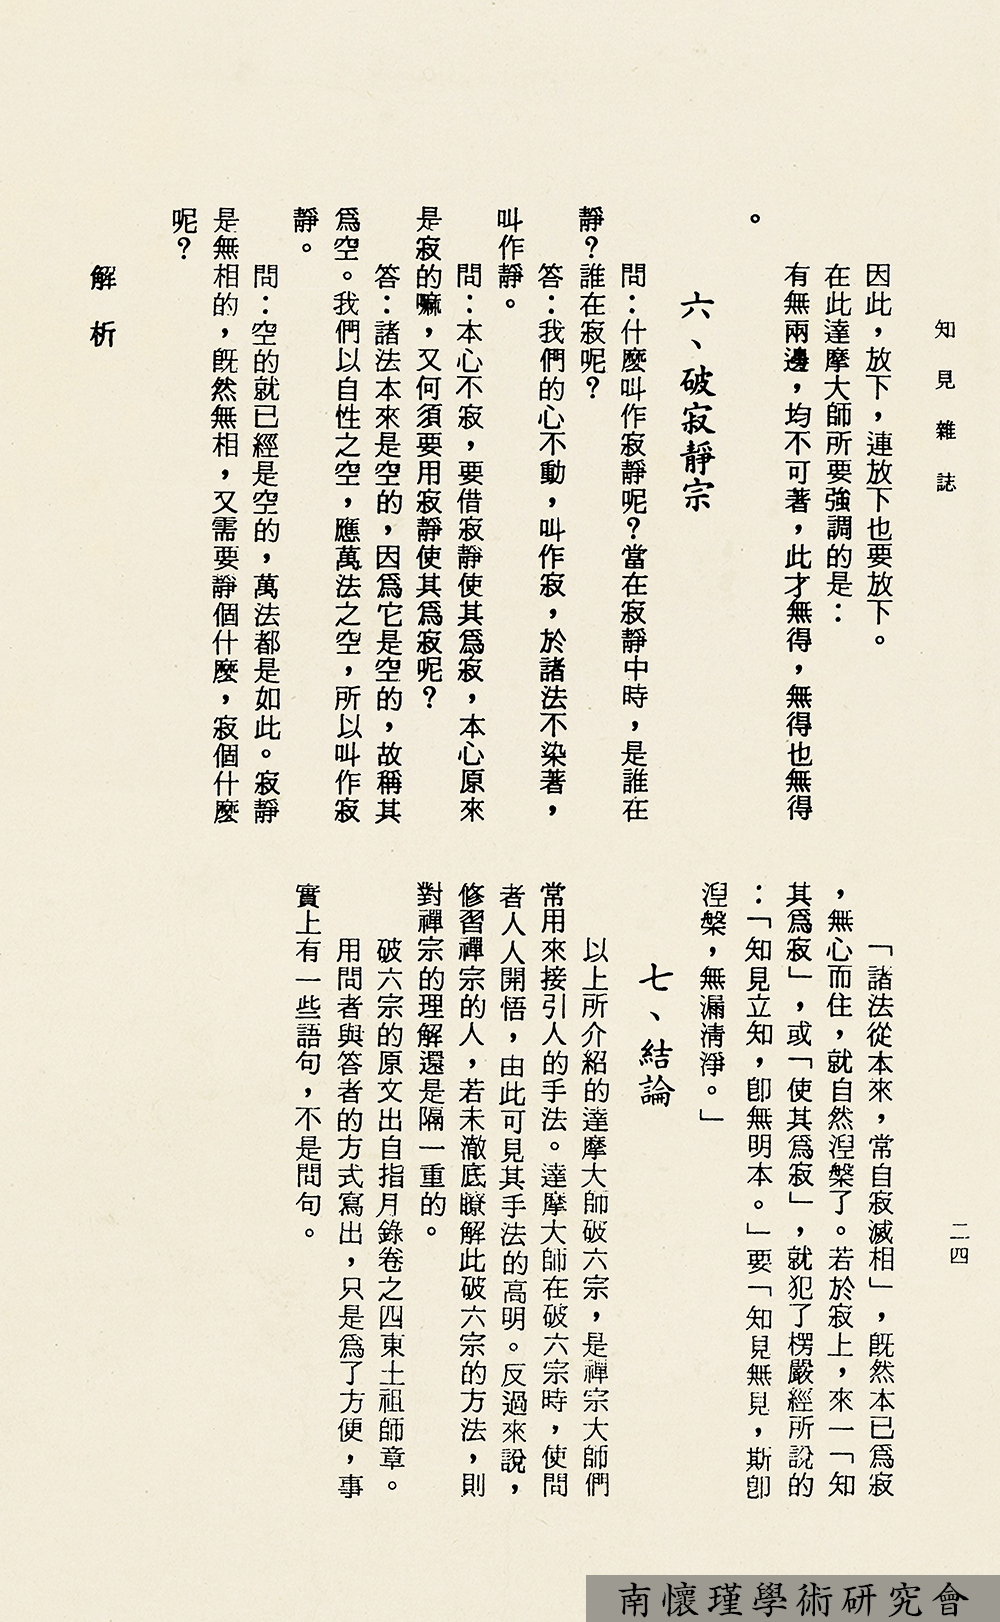 知見雜誌
二四
因此，放下，連放下也要放下。
在此達摩大師所要強調的是：
有無兩邊，均不可著，此才無得，無得也無得
。
六、破寂靜宗
問：什麼叫作寂靜呢？當在寂靜中時，是誰在
靜？誰在寂呢？
答：我們的心不動，叫作寂，於諸法不染著，
叫作靜。
問：本心不寂，要借寂靜使其爲寂，本心原來
是寂的嘛，又何須要用寂靜使其爲寂呢？
答：諸法本來是空的，因爲它是空的，故稱其
爲空。我們以自性之空，應萬法之空，所以叫作寂
靜。
問：空的就已經是空的，萬法都是如此。寂靜
是無相的，既然無相，又需要靜個什麼，寂個什麼
呢？
解析
「諸法從本來，常自寂滅相」，既然本已爲寂
，無心而住，就自然湼槃了。若於寂上，來一「知
其爲寂」，或「使其爲寂」，就犯了楞嚴經所說的
：「知見立知，卽無明本。」要「知見無見，斯卽
湼槃，無漏清淨。」
七、結論
以上所介紹的達摩大師破六宗，是禪宗大師們
常用來接引人的手法。達摩大師在破六宗時，使問
者人人開悟，由此可見其手法的高明。反過來說，
修習禪宗的人，若未澈底瞭解此破六宗的方法，則
對禪宗的理解還是隔一重的。
破六宗的原文出自指月錄卷之四東土祖師章。
用問者與答者的方式寫出，只是爲了方便，事
實上有一些語句，不是問句。
南懷瑾學術研究會